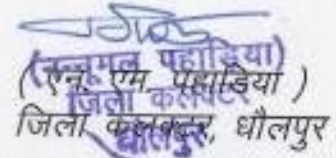 (नन्नूमल पहाडिया)
( एन. एम. पहाडिया )
जिला कलक्टर
जिला कलक्टर, धौलपुर
धौलपुर